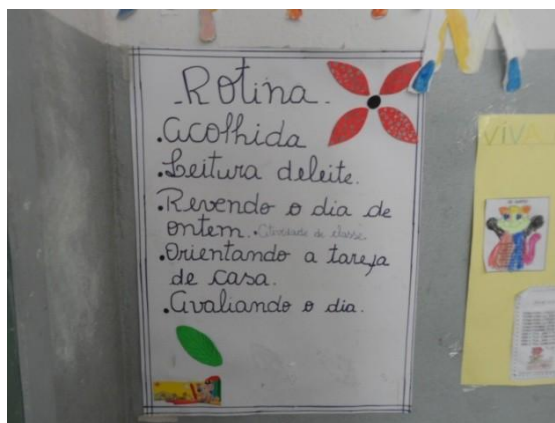 - Rotina -
. Acolhida
. Leitura deleite.
. Revendo o dia de
ontem. . Atividade de classe
. Orientando a tarefa
de casa.
. Avaliando o dia.
VIVA